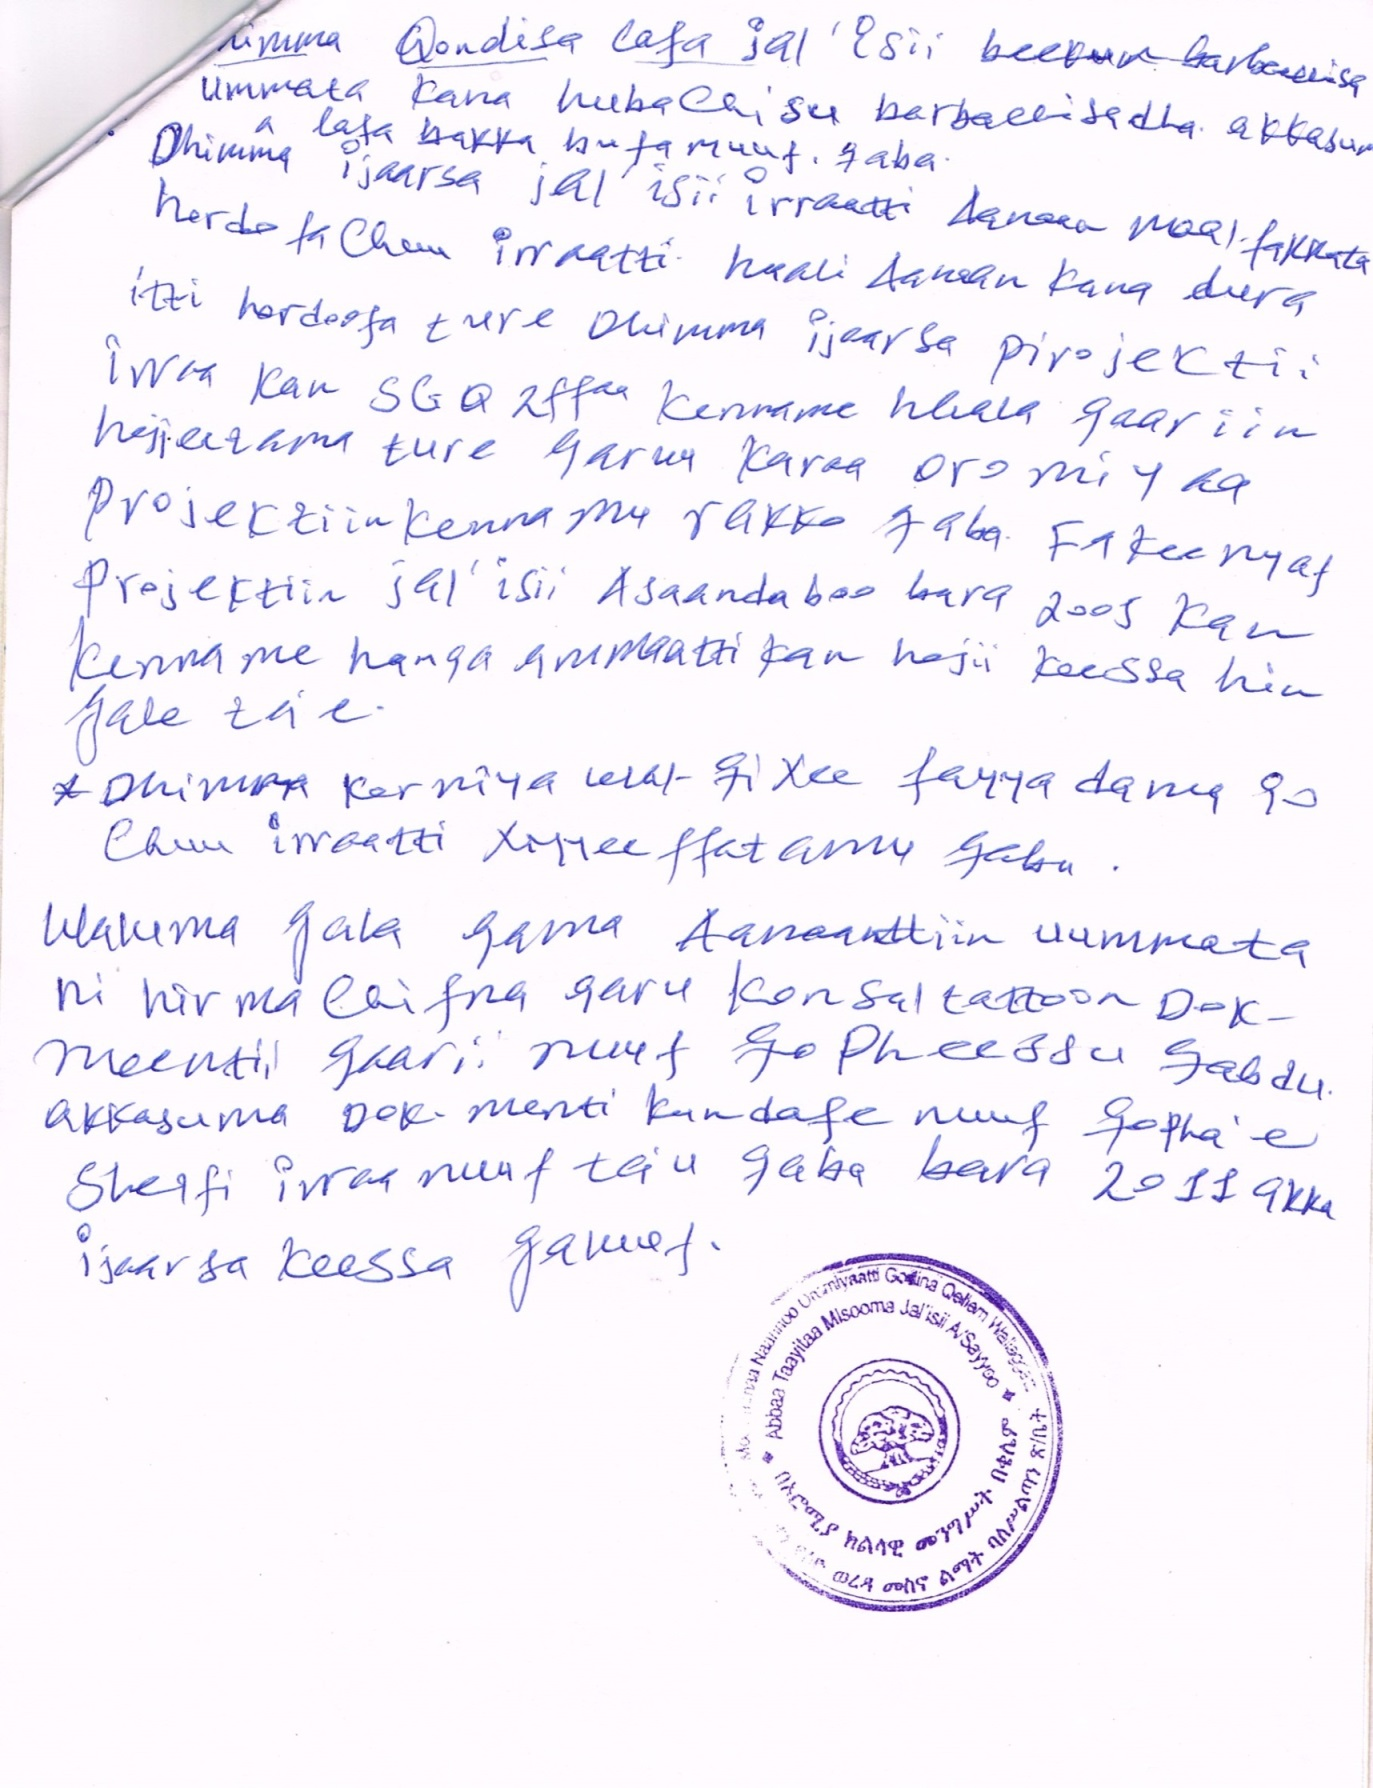 Qondisa lafa jal'isii beekun barbaachisa
ummata kana hubachisu barbaachisadha. akkasum
a lafa bakka bufamuuf. qaba.
Dhimma ijaarsa jal'isii irraatti Aanaan maal-fakkata
hordofachuu irraatti haali Aanaan kana dura
itti hordoofa ture Dhimma ijaarsa pirojektii
irraa kan SGQ 2ffaa kenname hhala gaariin
hojjeetama ture garuu karaa oromiyaa
projektiin kennamu rakko qaba. Fakeenyaf
projektiin jal'isii Asaandaboo bara 2005 kan
kenname hanga ammaatti kan hojii keessa hin
gale ta'e.
* Dhimma wal-gixee fayyadama go
chuu irraatti xiyyeeffatamu qaba.
Waluma gala gama Aanaanttiin uummata
ni hirmachifna garu konsaltattoon Dok-
meentii gaarii nuuf gopheessu qabdu.
akkasuma Dok-menti kundafe nuuf gopha'e
irraa nuuf ta'u qaba bara 2011 akka
ijaarsa keessa galuuf.
Naannoo Oromiyaatti Godina Qellem Wallaggaa
Abbaa Taayitaa Misooma Jal'isii A/Sayyoo